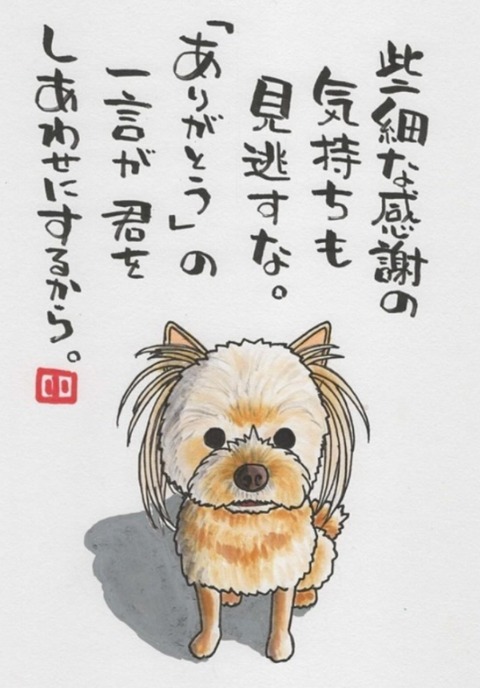 些細な感謝の
気持ちも
見逃すな。
「ありがとう」の
一言が 君を
しあわせにするから。